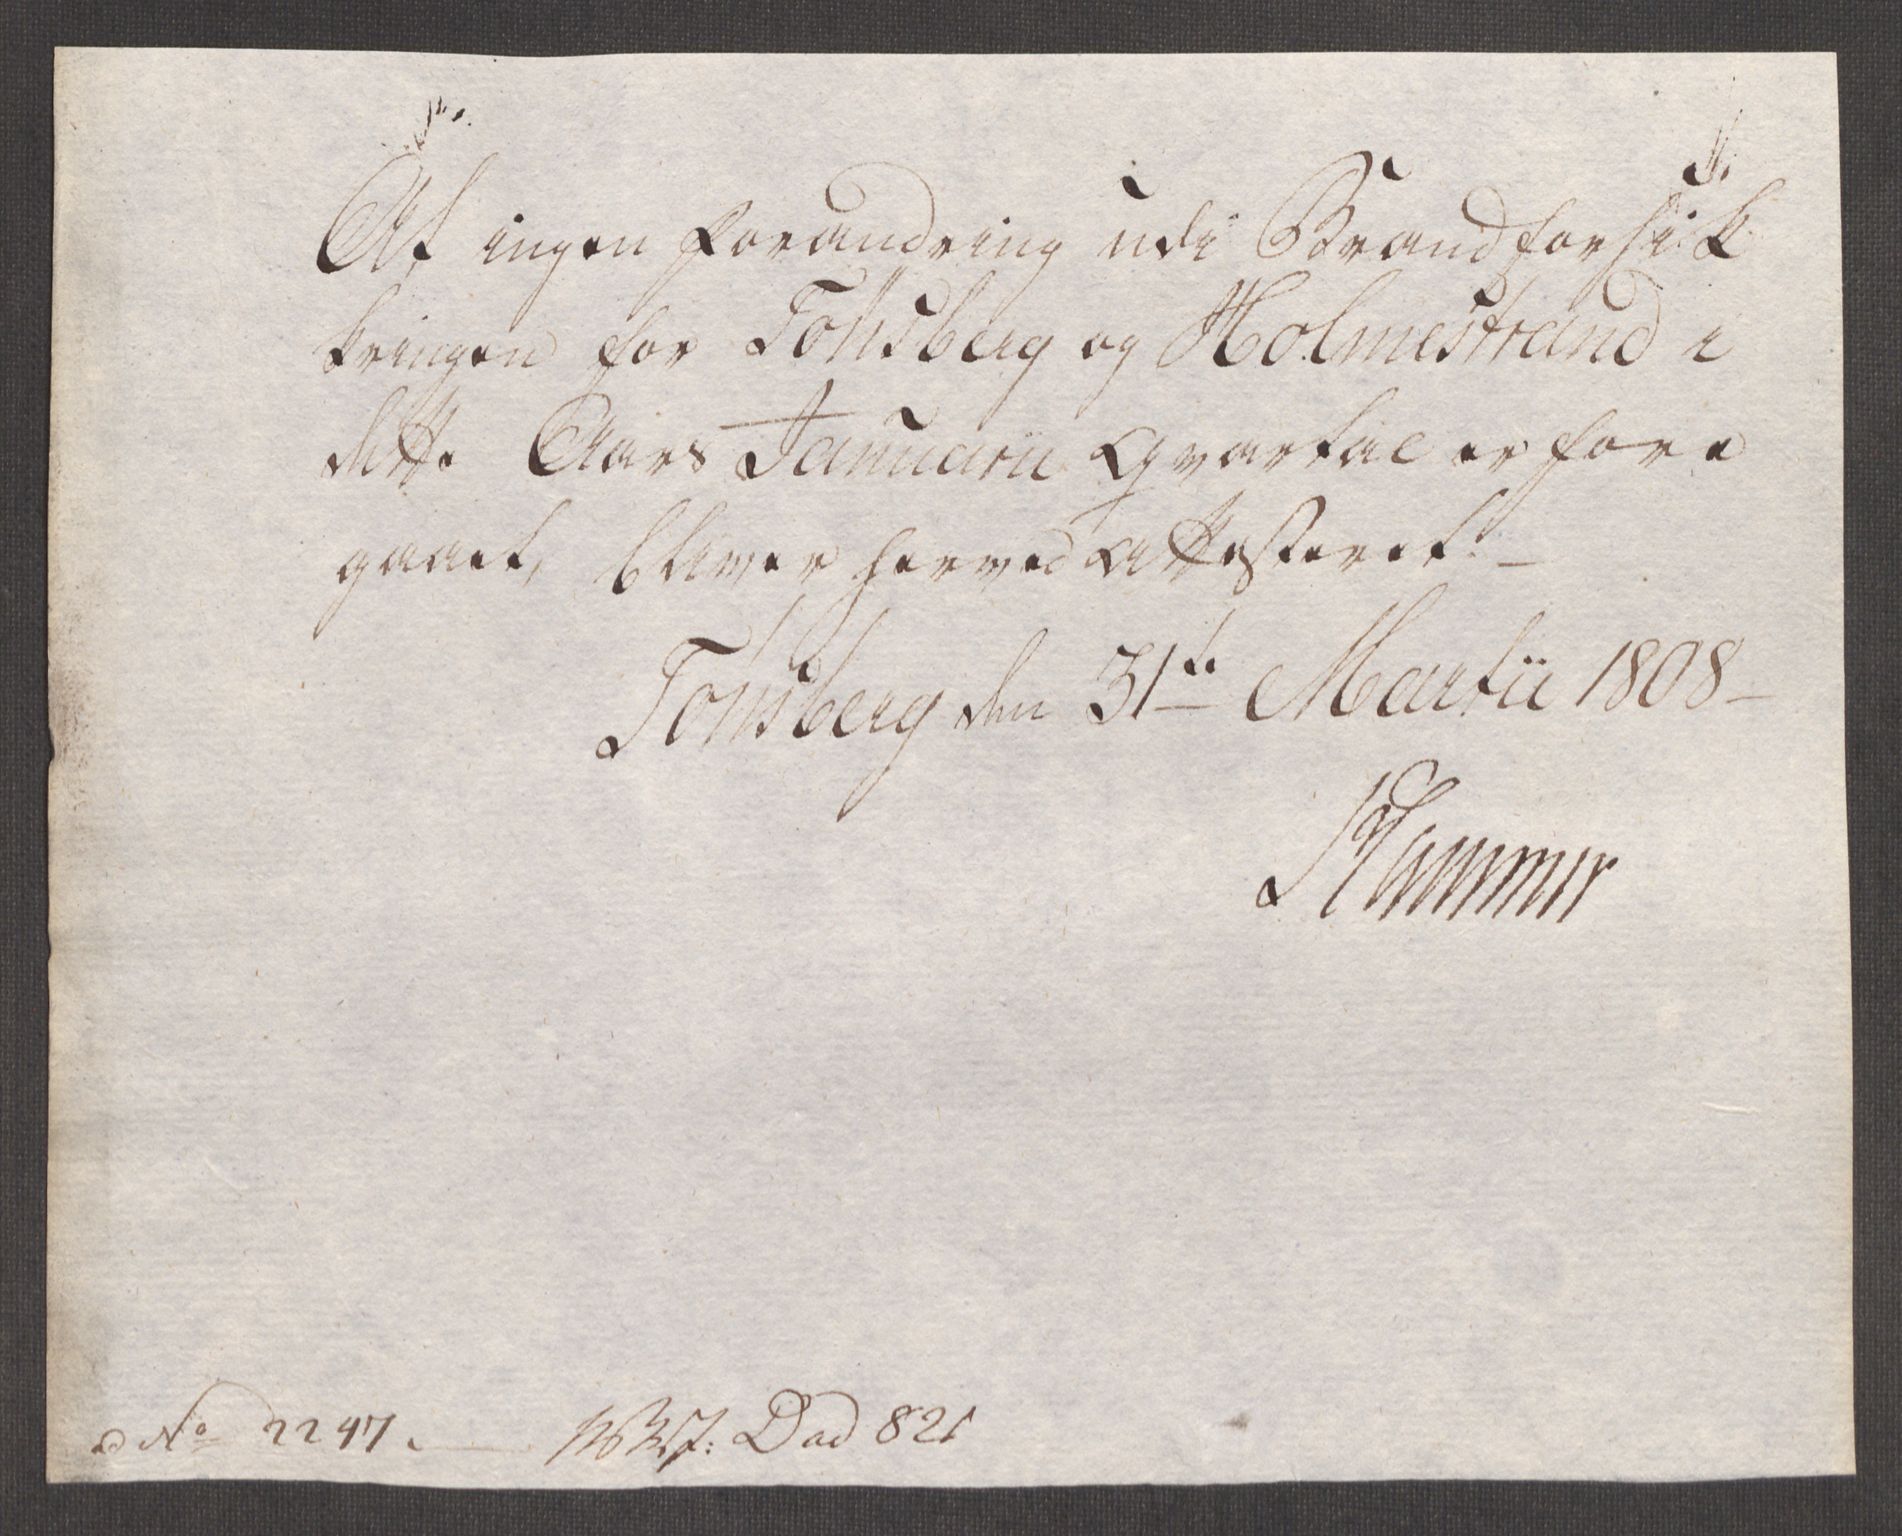 At ingen forandring udi Brandforsik
kringen for Tønsberg og Holmestrand i
dette Aars Januarii Qvartal er fore
gaaet, bliver herved Attesteret. –
Tønsberg den 31te Martii 1808 –
Hammer
No 2247.
Dad 821